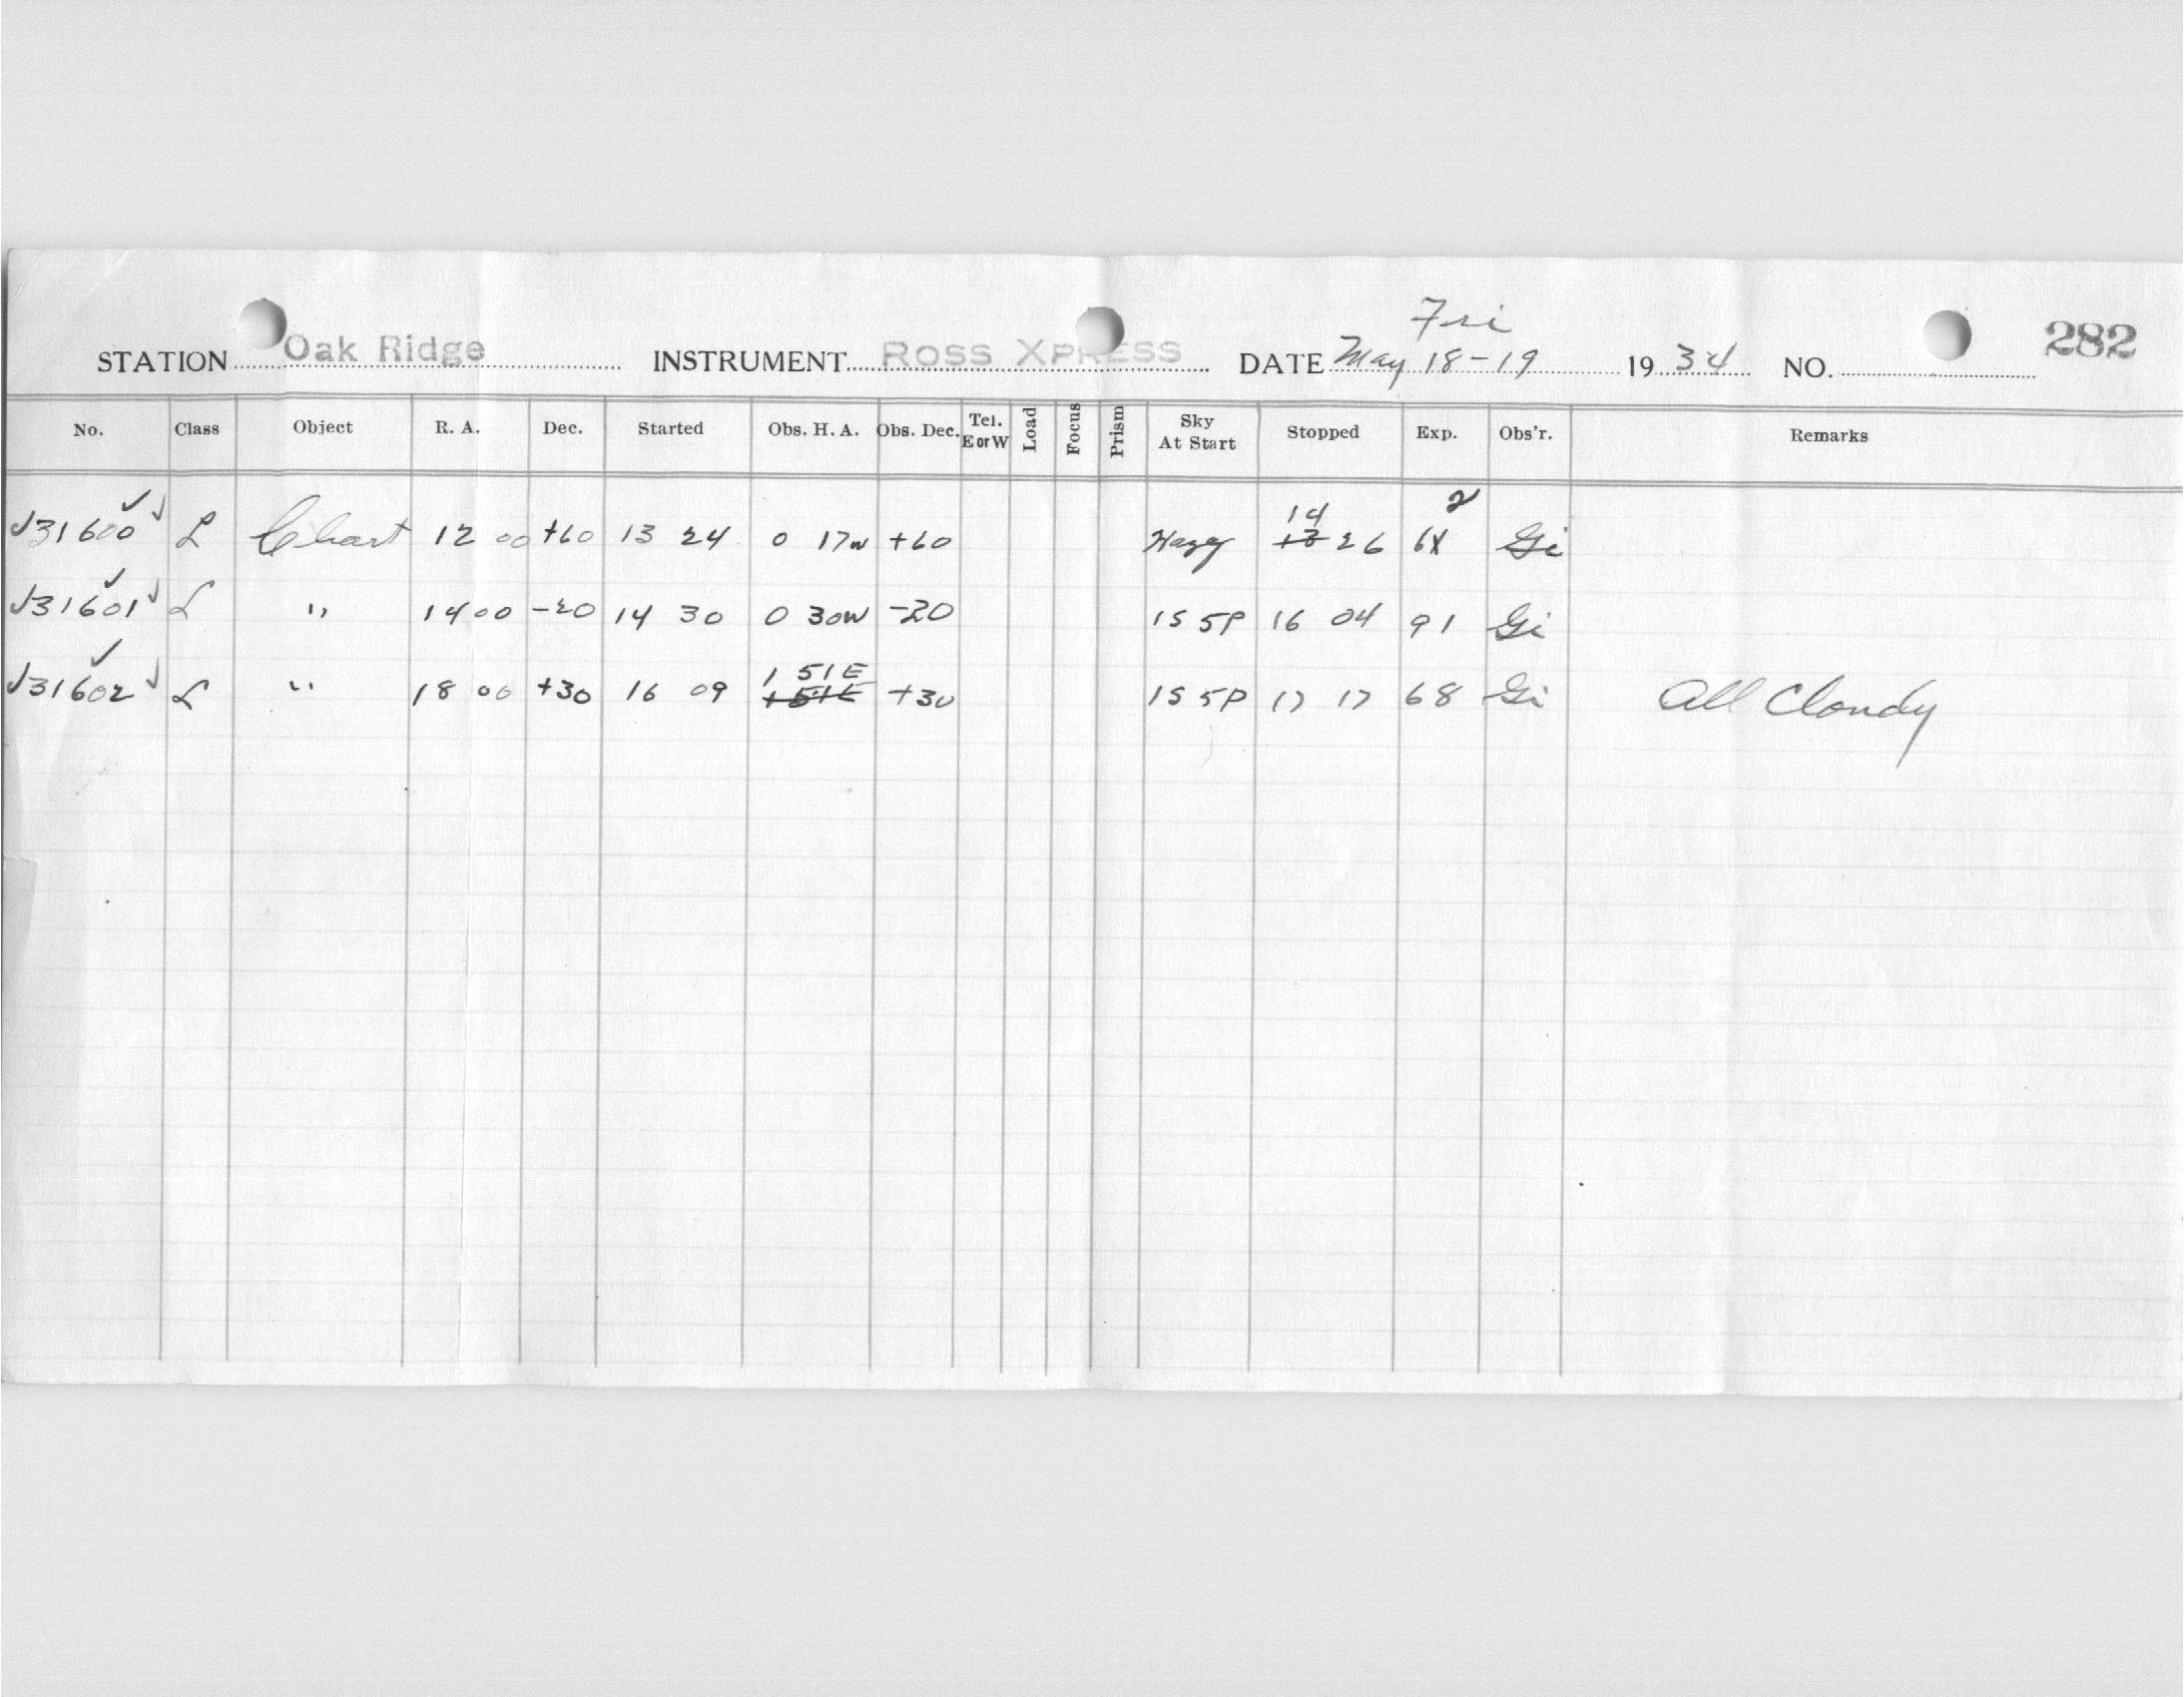 Fri
STATION Oak Ridge INSTRUMENT ROSS XPRESS DATE May 18-19 1934 NO. 282
No. Class Object R. A. Dec. Started Obs. H. A. Obs. Dec. Tel. E or W Load Focus Prism Sky At Start Stopped Exp. Obs'r. Remarks
31600 L Chart 12 00 +60 13 24 0 17W +60 Hazy 14 26 62 Gi
31601 L " 14 00 -20 14 30 0 30W -20 1S 5P 16 04 91 Gi
31602 L " 18 00 +30 16 09 1 51E +30 1S 5P 17 17 68 Gi All Cloudy